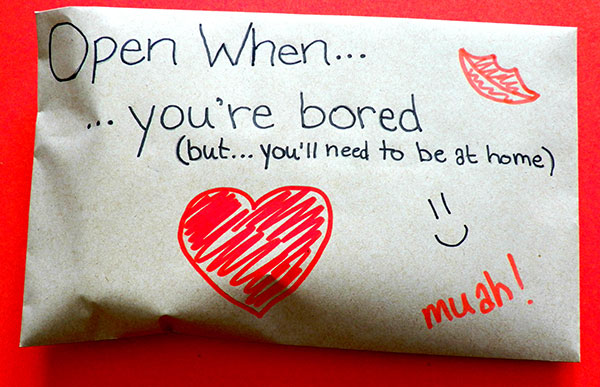 Open When...
... you're bored
(but... you'll need to be at home)
muah!